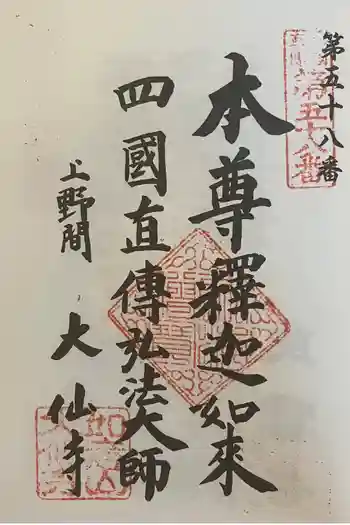 第五十八番
本尊釋迦如來
四國直傳弘法大師
上野間
大仙寺